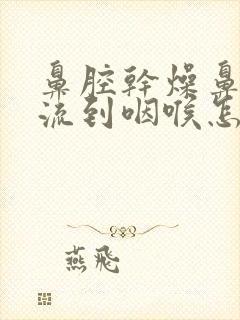 鼻腔幹燥鼻
流到咽喉怎
燕飛